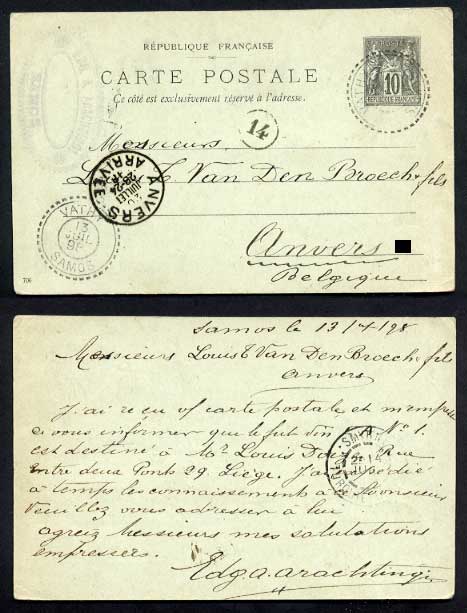 RÉPUBLIQUE FRANÇAISE
CARTE POSTALE
Ce côté est exclusivement réservé à l'adresse.
10
RÉPUBLIQUE FRANÇAISE
VATHY
14
Messieurs
Louis Van Den Broeck & fils
ANVERS
JUILLET
ARRIVÉE
Anvers
Belgique
VATHY
13
JUIL
98
SAMOS
706
Samos le 13/7/98
Messieurs Louis Van Den Broeck & fils
Anvers
J'ai reçu v/ carte postale et m'empresse
à vous informer que le fut vin No 1.
est destiné à Mr Louis Rue
Entre deux Ponts 29 Liège. J'ai expédié
à temps les connaissement à Monsieur
Veuillez vous adresser à lui
agréez messieurs mes salutations
empressées.